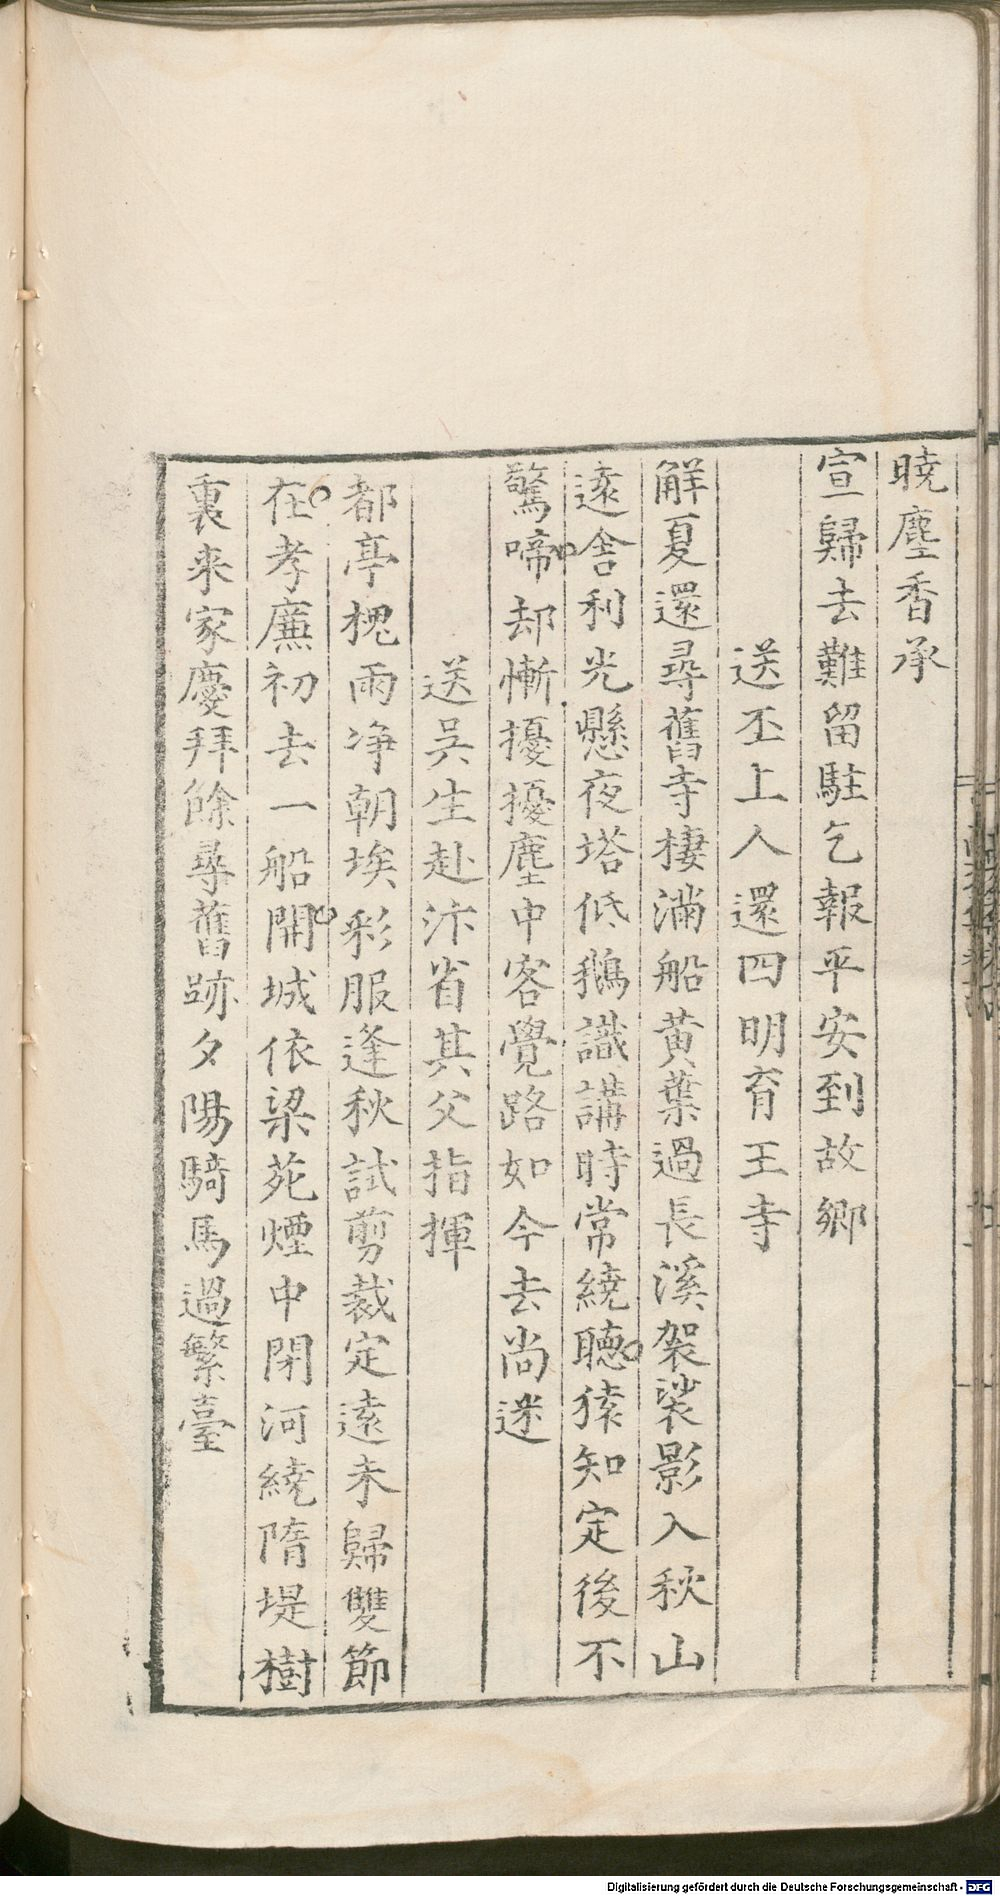 曉塵香承
宣歸去難留駐乞報平安到故鄉
送丕上人還四明育王寺
解夏還尋舊寺棲滿船黄葉過長溪袈裟影入秋山
遠舍利光懸夜塔低鵝識講時常繞聽猿知定後不
驚啼却慚擾擾塵中客覺路如今去尚迷
送吳生赴汴省其父指揮
都亭槐雨净朝埃彩服逢秋試剪裁定遠未歸雙節
在孝廉初去一船開城依梁苑煙中閉河繞隋堤樹
裏来家慶拜餘尋舊跡夕陽騎馬過繁臺
Digitalisierung gefördert durch die Deutsche Forschungsgemeinschaft - DFG